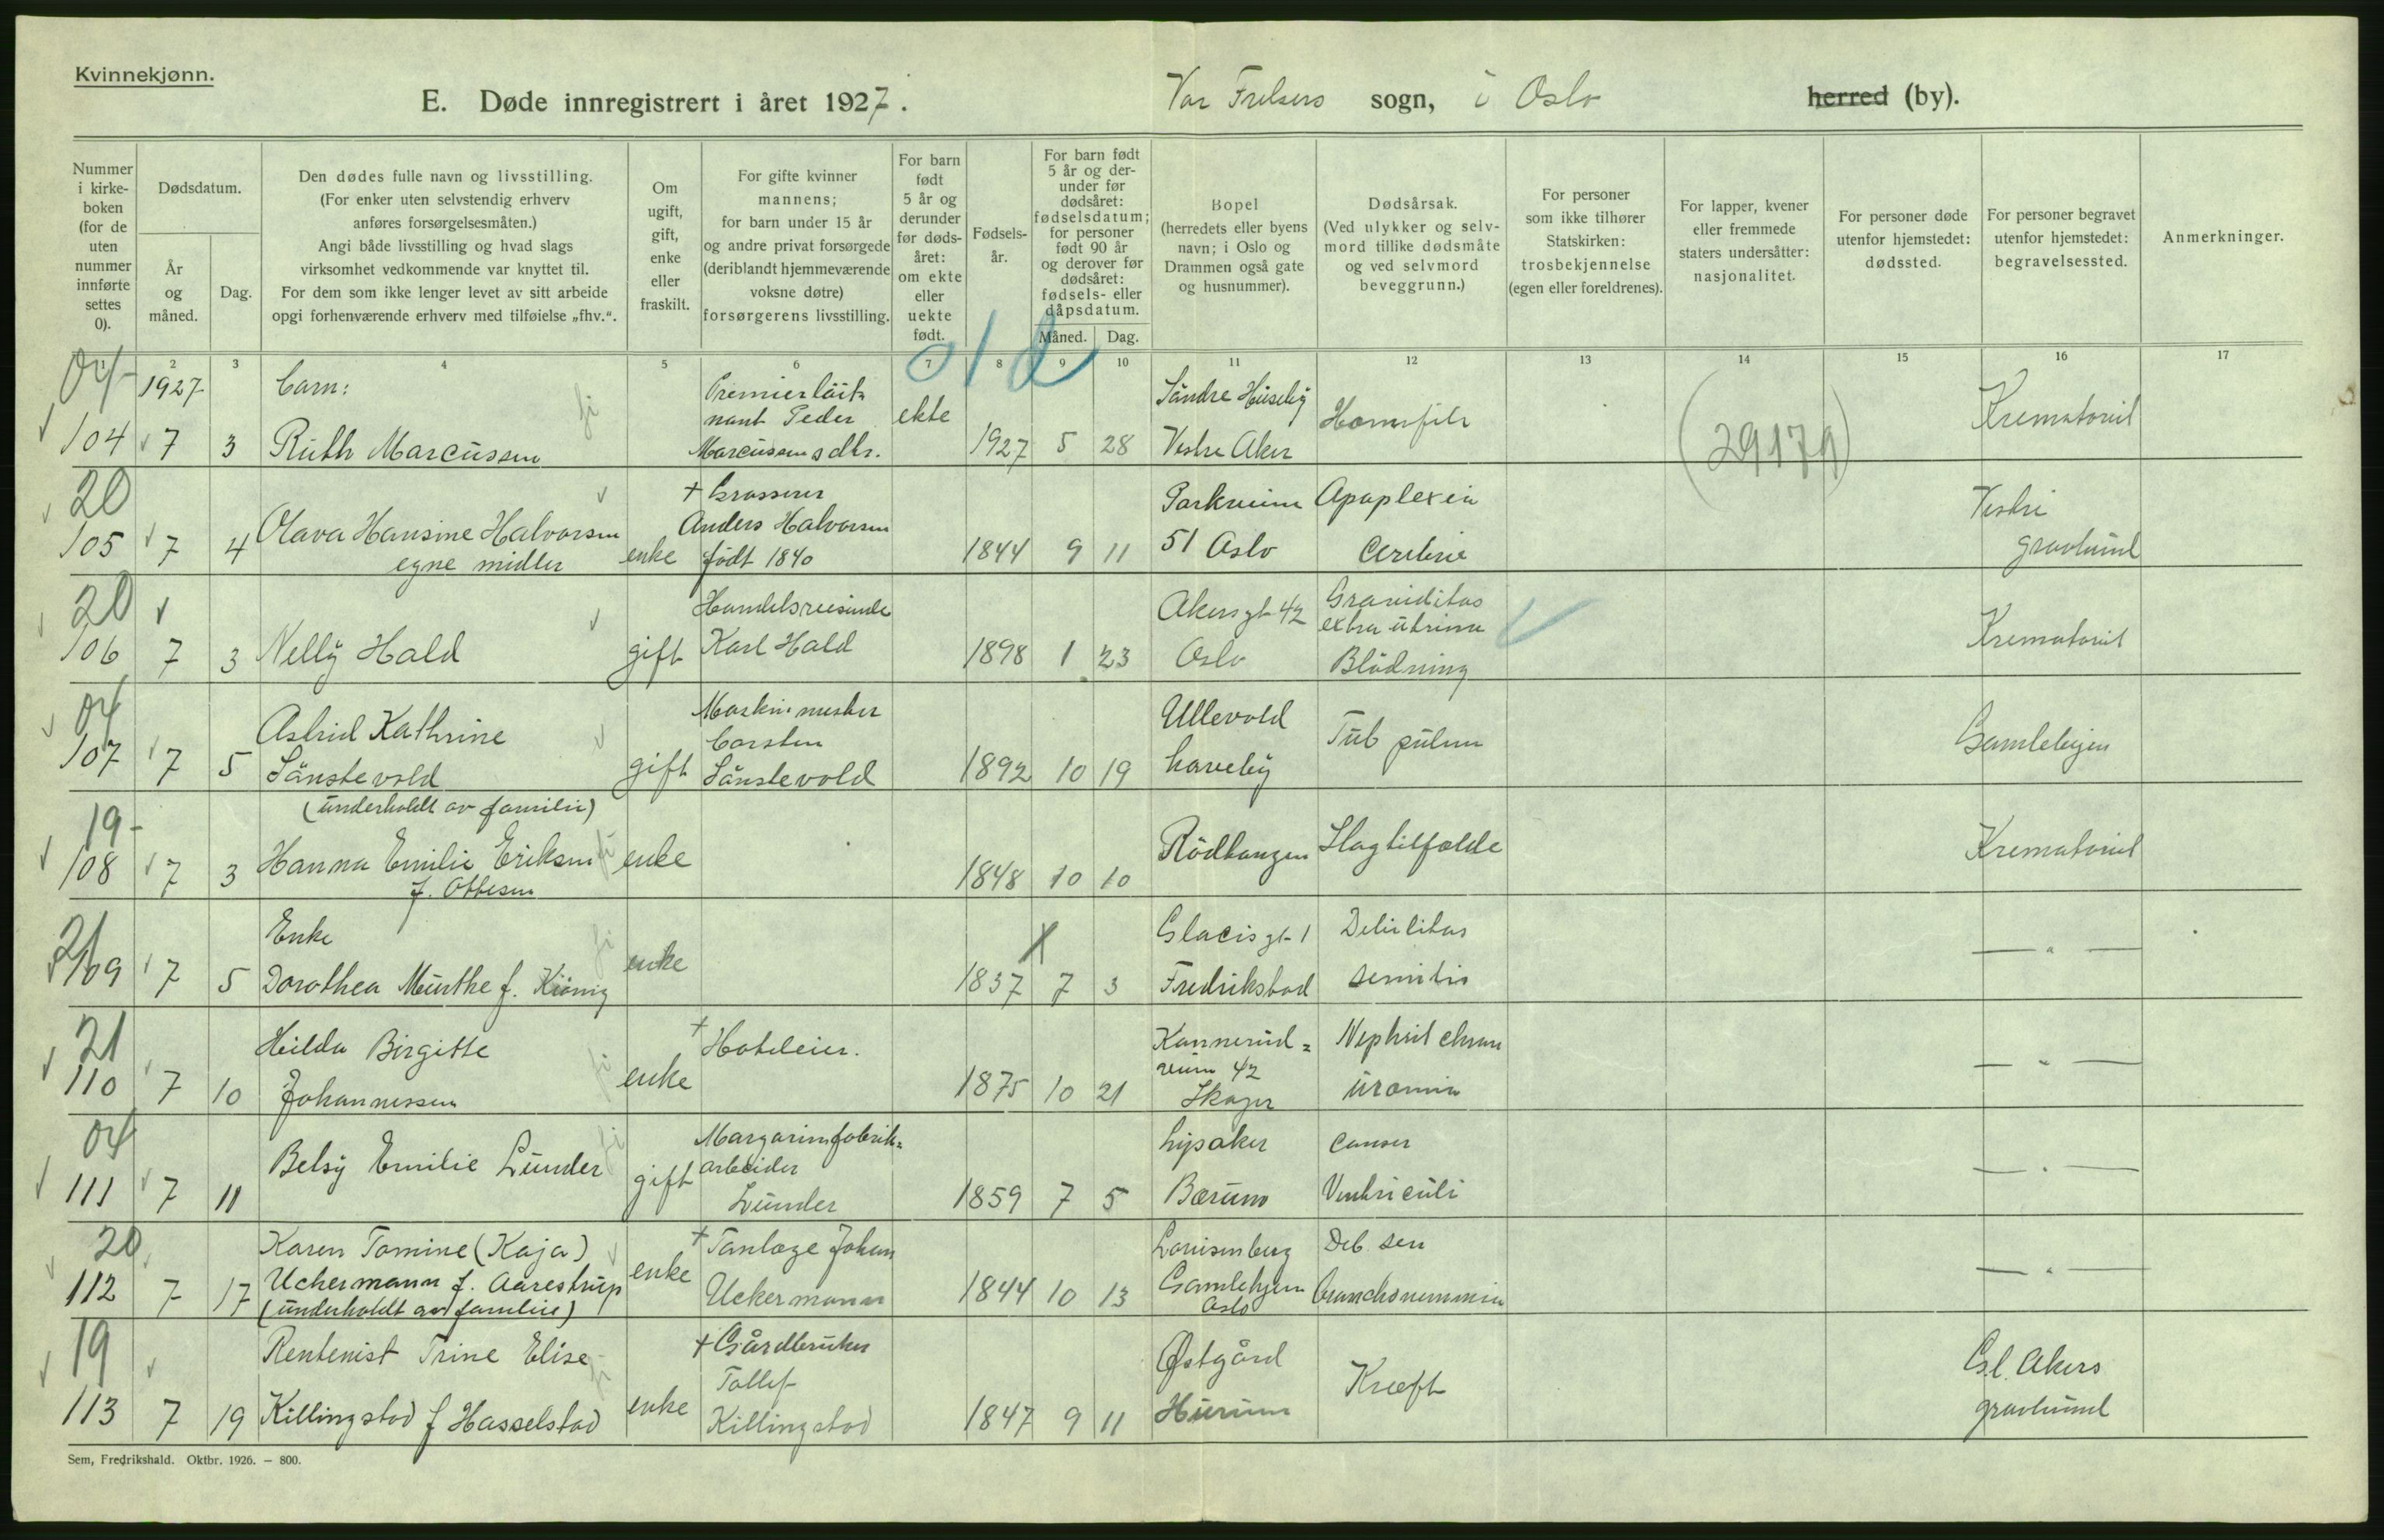 Kvinnekjønn.
E. Døde innregistrert i året 1927. Vår Frelsers sogn, i Oslo herred (by).
Nummer i kirkeboken (for de uten nummer innførte settes 0).
Dødsdatum.
År og måned.
Dag.
Den dødes fulle navn og livsstilling.
(For enker uten selvstendig erhverv
anføres forsørgelsesmåten.)
Angi både livsstilling og hvad slags
virksomhet vedkommende var knyttet til.
For dem som ikke lenger levet av sitt arbeide
opgi forhenværende erhverv med tilføielse „fhv.“.
Om ugift, gift, enke eller fraskilt.
For gifte kvinner
mannens;
for barn under 15 år
og andre privat forsørgede
(deriblandt hjemmeværende
voksne døtre)
forsørgerens livsstilling.
For barn født 5 år og derunder før dødsåret: om ekte eller uekte født.
Fødselsår.
For barn født 5 år og derunder før dødsåret: fødselsdatum; for personer født 90 år og derover før dødsåret: fødsels- eller dåpsdatum.
Måned. Dag.
Bopel
(herredets eller byens
navn; i Oslo og
Drammen også gate
og husnummer).
Dødsårsak.
(Ved ulykker og selv-
mord tillike dødsmåte
og ved selvmord
beveggrunn.)
For personer
som ikke tilhører
Statskirken:
trosbekjennelse
(egen eller foreldrenes).
For lapper, kvener
eller fremmede
staters undersåtter:
nasjonalitet.
For personer døde
utenfor hjemstedet:
dødssted.
For personer begravet
utenfor hjemstedet:
begravelsessted.
Anmerkninger.
2 3 4 5 6 7 8 9 10 11 12 13 14 15 16 17
1927 Barn: Premierløit= Søndre Huseby
nant Peder ekte Krematoriet
104 7 3 Ruth Marcussen Marcussens dtr. 1927 5 28 Vestre Aker (29179)
20 + Grosserer Parkveien Apoplexia Vestre
105 7 4 Olava Hansine Halvorsen Anders Halvorsen 51 Oslo Cerebri gravlund
egne midler enke født 1840 1844 9 11
20 Handelsreisende Akersgt 42 Graviditas
extra uterina
106 7 3 Nelly Hald gift Karl Hald 1898 1 23 Oslo Blødning Krematoriet
Astrid Kathrine Maskinmester Ullevold
107 7 5 Sønstevold gift Carsten Sønstevold 1892 10 19 haveby Tub pulm Gamlebyen
(underholdt av familie)
19-
108 7 3 Hanna Emilie Eriksen enke 1848 10 10 Rødtangen Slagtilfælde Krematoriet
f. Ottesen
21 Enke Glacisgt 1 Debilitas
109 7 5 Dorothea Münthe f. enke 1837 7 3 Fredrikstad senilis — „ —
21 Hilda Birgitte + Hoteleier. Nephrit chron
veien 42
110 7 10 Johannessen enke 1875 10 21 uræmia — „ —
Margarinfabrik= Lysaker cancer
Betsy Emilie Lunder arbeider
111 7 11 gift Lunder 1859 7 5 Bærum Ventriculi — „ —
20 Karen Tomine (Kaja) + Tanlæge Johan Lovisenberg Deb. sen
112 7 17 Uchermann f. Aarestrup enke Uckermann 1844 10 13 Gamlehjem — „ —
(underholdt av familie) Oslo
19 Rentenist Trine Elise + Gårdbruker Østgård Gl. Akers
Tollef Kræft
113 7 19 Killingstad f Hasselstad enke Killingstad 1847 9 11 Hurum gravlund
Sem, Fredrikshald. Oktbr. 1926. — 800.